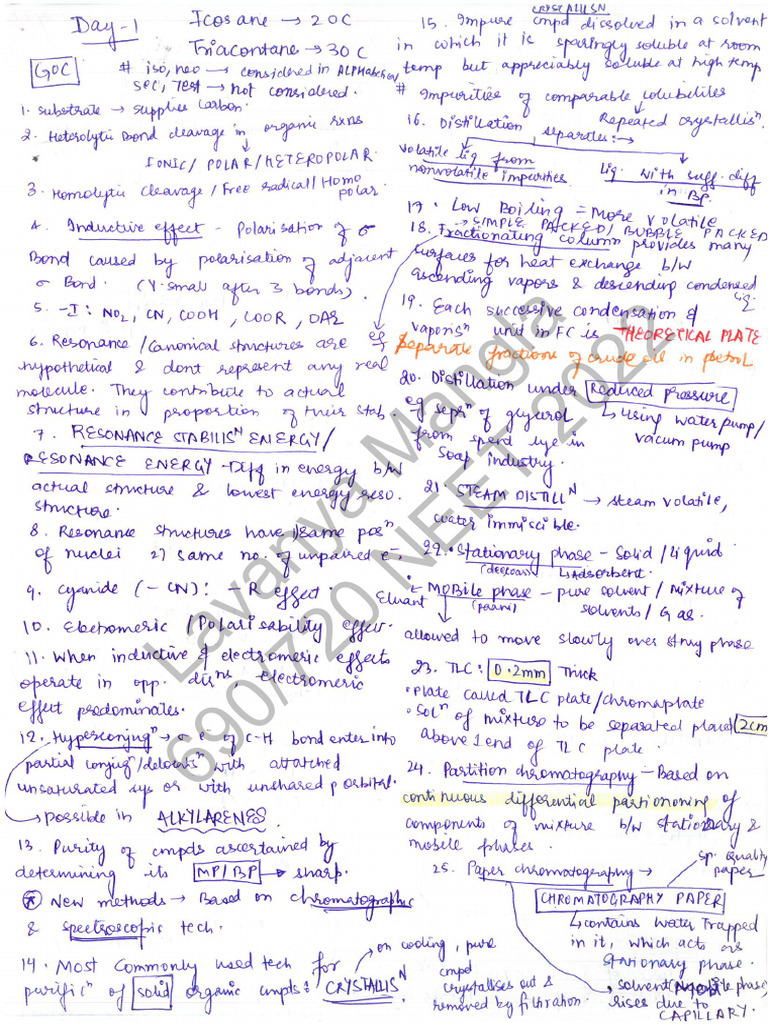 Day-1
Icosane → 20C
Triacontane → 30C
GOC
# iso, neo → considered in ALPHabetical
sec, Tert → not considered.
1. substrate → supplies carbon.
2. Heterolytic Bond cleavage in organic rxns
IONIC/POLAR/HETEROPOLAR.
3. Homolytic cleavage/Free radical/Homo
polar.
4. Inductive effect - Polarisation of σ
Bond caused by polarisation of adjacent
σ Bond. (V. small after 3 bonds).
5. -I: NO2, CN, COOH, COOR, OAR
6. Resonance/Canonical structures are
hypothetical & dont represent any real
molecule. They contribute to actual
structure in proportion of their stab.
7. RESONANCE STABILISN ENERGY/
RESONANCE ENERGY - Diff in energy b/w
actual structure & lowest energy reso.
structure.
8. Resonance structures have 1) same posn
of nuclei 2) same no. of unpaired e-.
9. Cyanide (-CN): -R effect.
10. Electromeric/Polarisability effect.
11. When inductive & electromeric effects
operate in opp. dirns, electromeric
effect predominates.
12. Hyperconjugn → σ e- of C-H bond enter into
partial conjugn/delocalisn with attatched
unsaturated sys or with unshared p orbital.
→ possible in ALKYLARENES.
13. Purity of cmpds ascertained by
determining its MP/BP → sharp.
* New methods → Based on chromatographic
& spectroscopic tech.
14. Most commonly used tech for
purificn of solid organic cmpds: CRYSTALLISN
→ on cooling, pure
cmpd
crystallises out &
removed by filtration.
CRYSTALLISN
15. Impure cmpd dissolved in a solvent
in which it is sparingly soluble at room
temp but appreciably soluble at high temp
# Impurities of comparable solubilites
→ Repeated crystallisn.
16. Distillation separates:→
volatile liq from
nonvolatile impurities
Liq. with suff. diff
in BP.
17. Low Boiling = More volatile
→ SIMPLE PACKED/BUBBLE PACKED
18. Fractionating column provides many
surfaces for heat exchange b/w
ascending vapors & descending condensed
liq
19. Each successive condensation &
vaporisn unit in FC is THEORETICAL PLATE
eg Separate fractions of crude oil in petrol
20. Distillation under Reduced pressure
eg seprn of glycerol
from spend lye in
soap industry.
→ using water pump/
vacuum pump
21. STEAM DISTILLN → steam volatile,
water immiscible.
22. • Stationary phase - Solid/Liquid
→ Adsorbent.
• MOBile phase - pure solvent/mixture of
solvents/Gas.
Eluant
allowed to move slowly over stnry phase
23. TLC: 0.2mm Thick
• Plate called TLC plate/chromaplate
• Soln of mixture to be separated placed 2cm
above 1 end of TLC plate.
24. Partition chromatography - Based on
continuous differential partiononing of
components of mixture b/w stationary &
mobile phases.
25. Paper chromatography →
sp. quality
paper
CHROMATOGRAPHY PAPER
→ contains water trapped
in it, which acts as
stationary phase.
• solvent (mobile phase)
rises due to
CAPILLARY.
Lavanya Mangla
690/720 NEET 2022